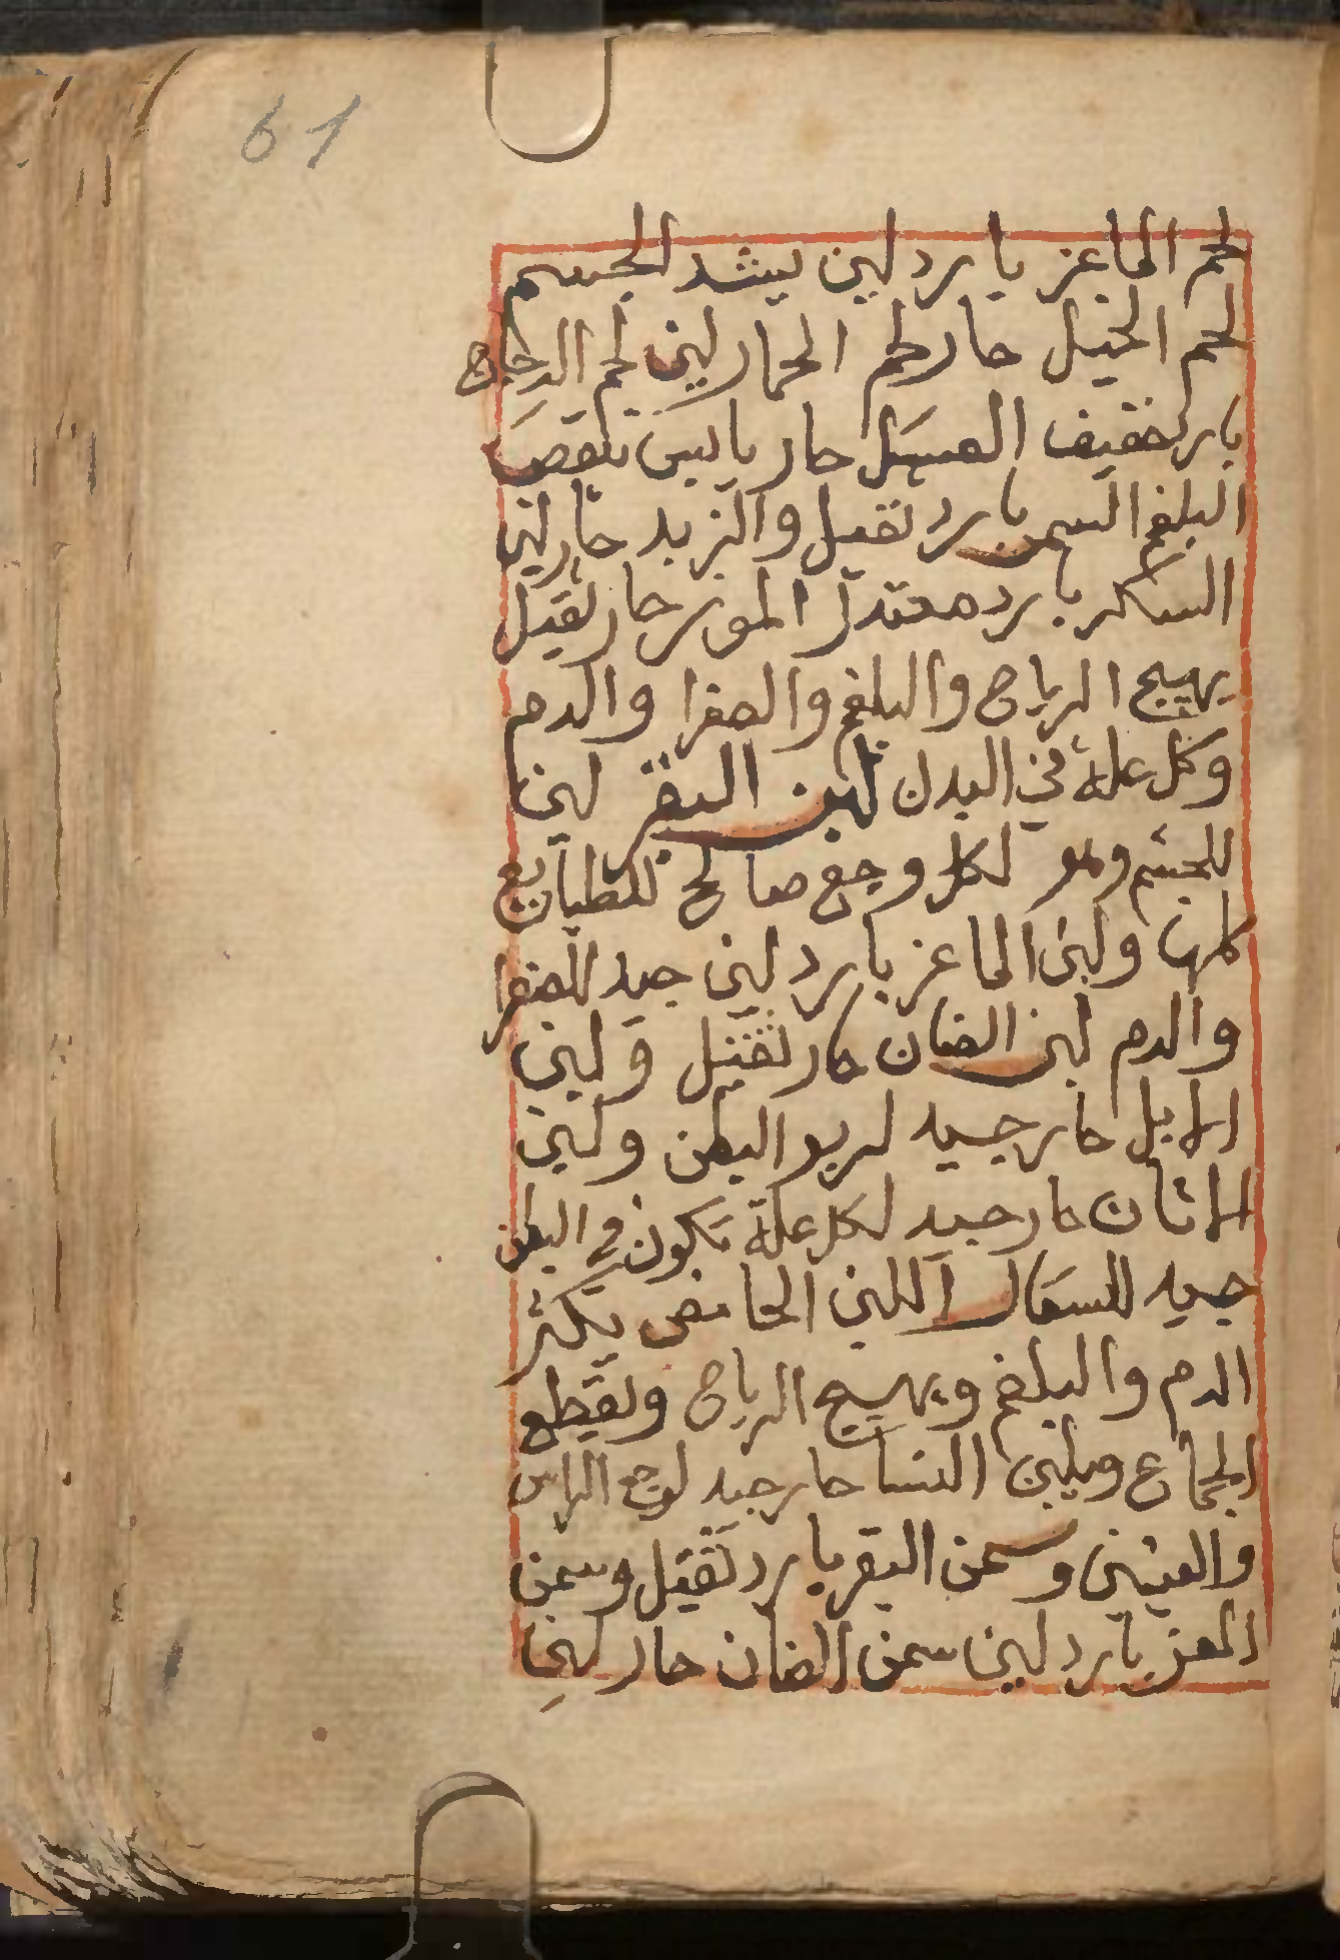 61
لحم الماعز بارد لين يشد الجسم
لحم الخيل حار لحم الحمار لين لحم الدجاج
بارد خفيف العسل حار يابس ينقص
البلغم السمن بارد ثقيل والزبد حار لين
السكر بارد معتدل الموز حار ثقيل
يهيج الرياح والبلغم والصفرا والدم
وكل علة في البدن لبن البقر لين
للجسم وهو لكل وجع صالح للطبايع
كلها ولبن الماعز بارد لين جيد للصفرا
والدم لبن الضان حار ثقيل ولبن
الابل حار جيد لربو البطن ولبن
الاتان حار جيد لكل علة تكون في البطن
جيد للسعال اللبن الحامض يكثر
الدم والبلغم ويهيج الرياح ويقطع
الجماع ولبن النسا حار جيد لوجع الراس
والعينين وسمن البقر بارد ثقيل وسمن
المعز بارد لين سمن الضان حار لين